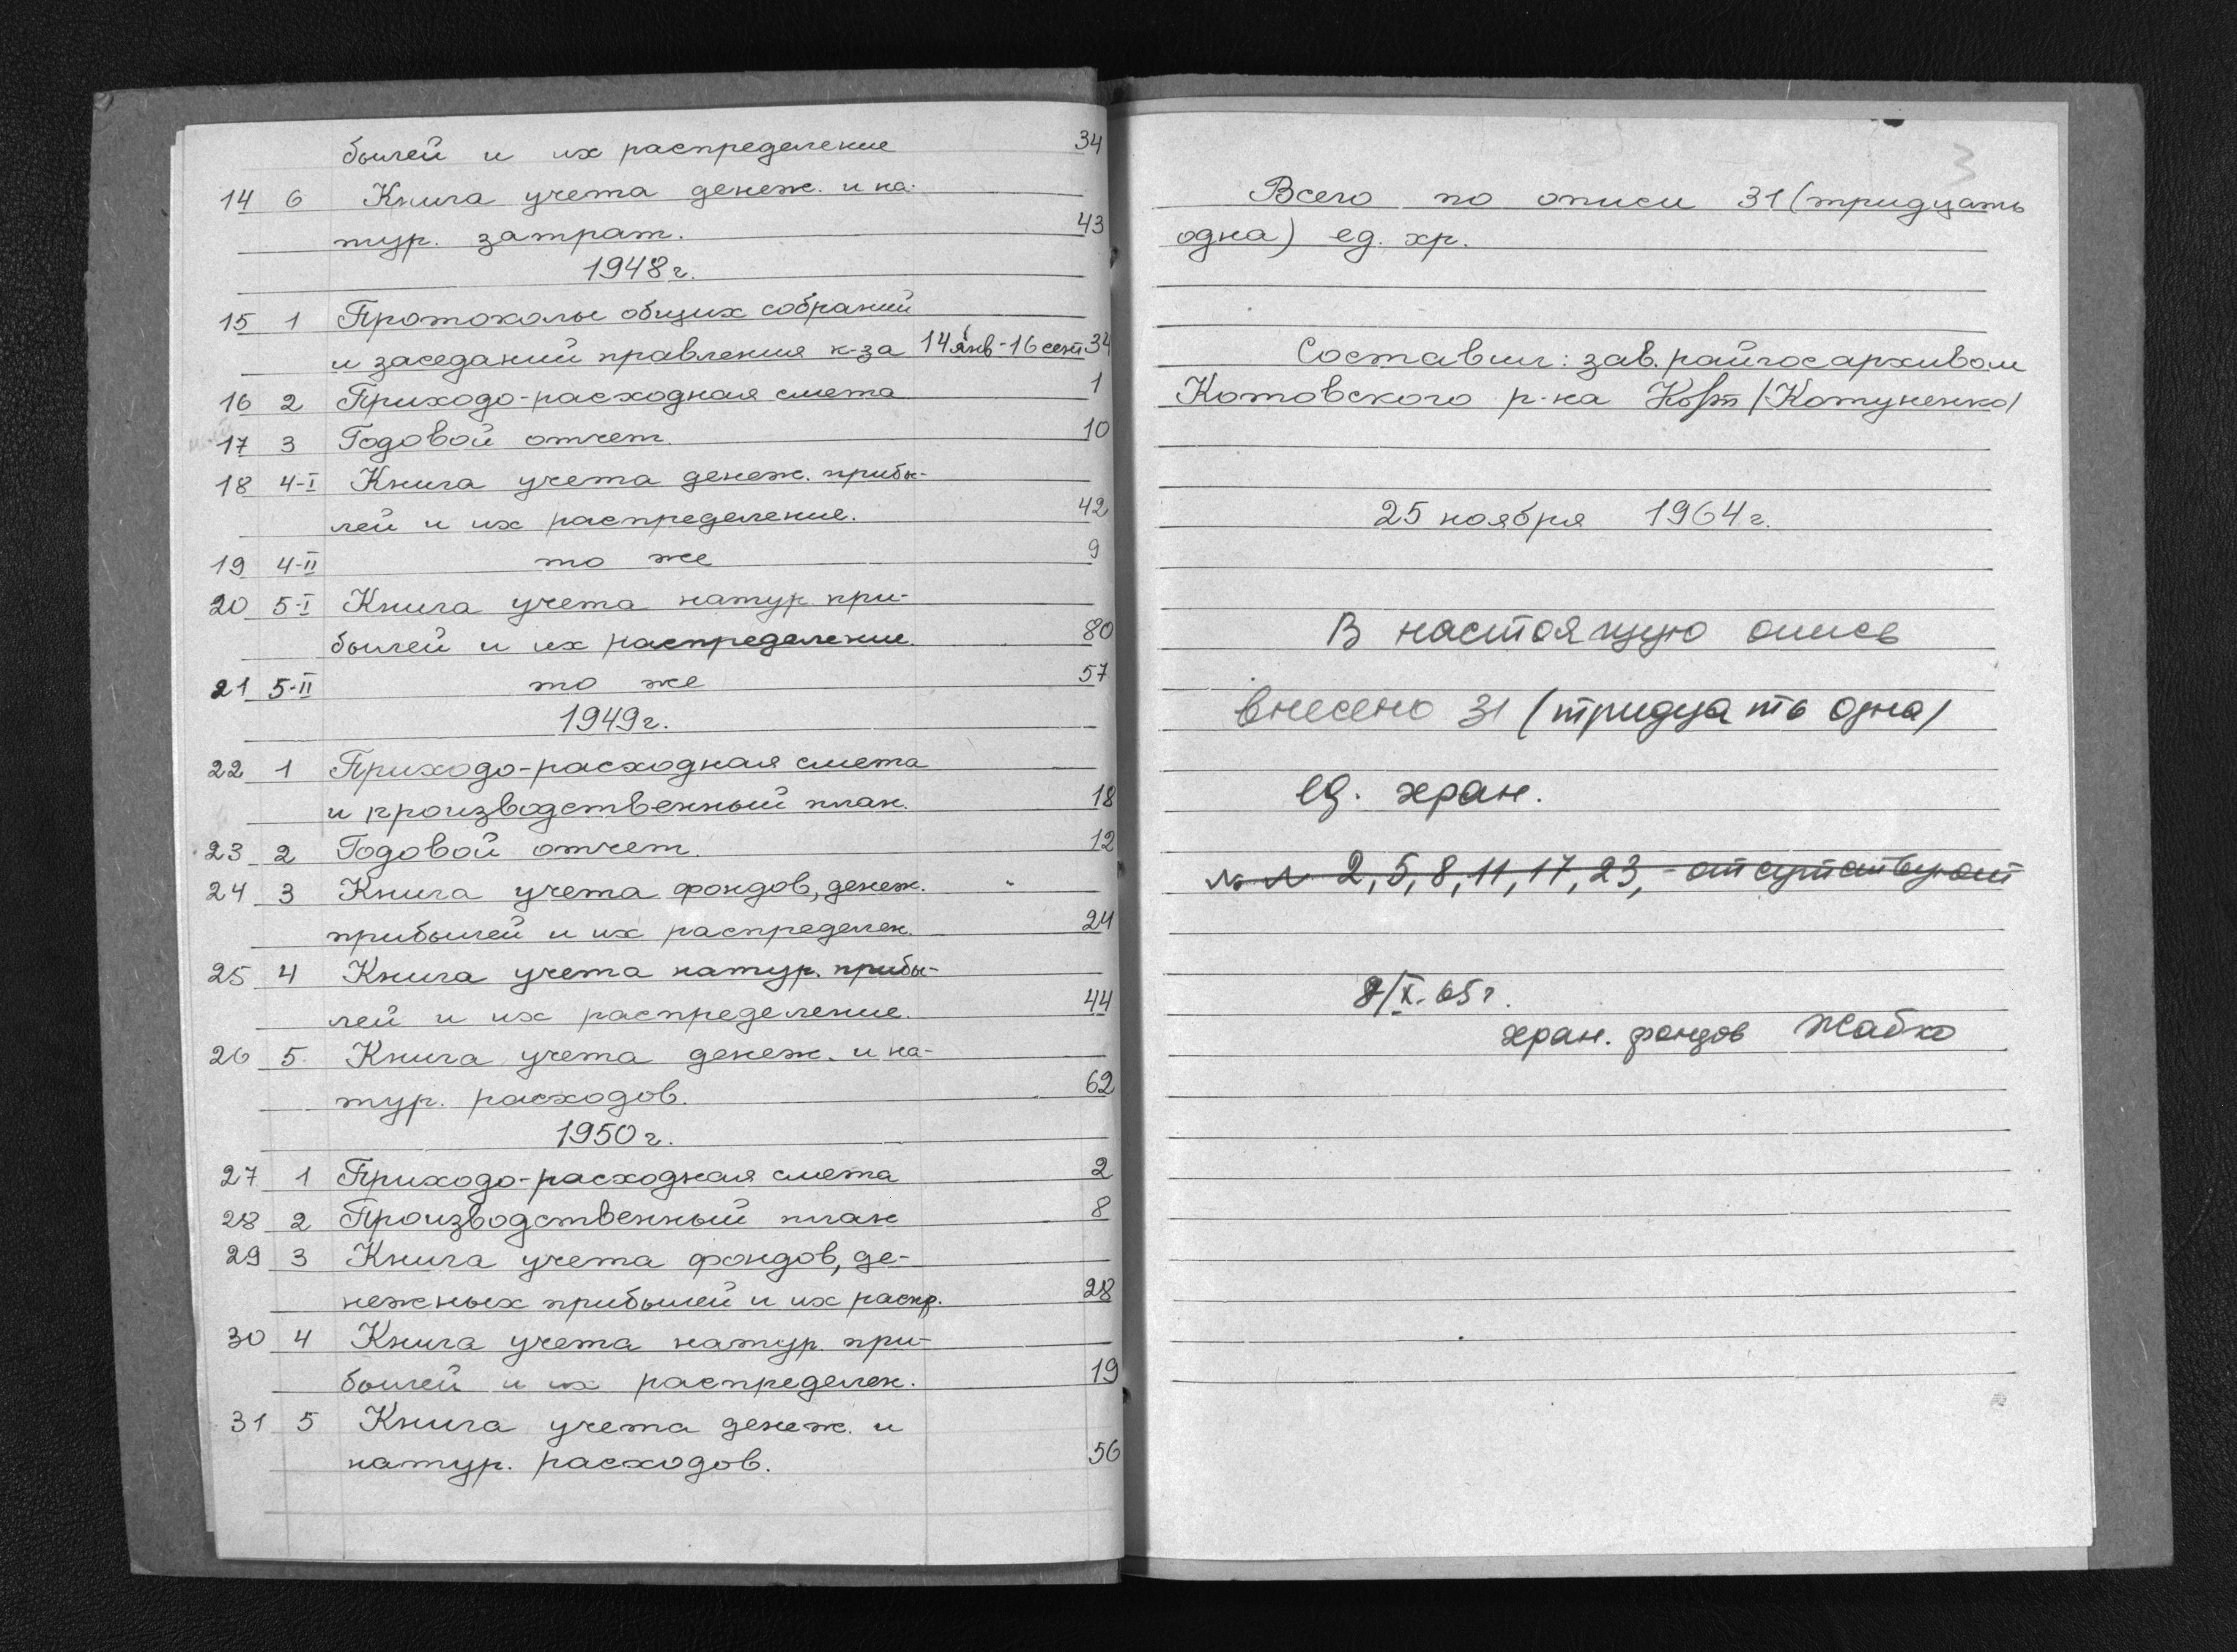 былей и их распределение 34
14 6 Книга учета денеж. и на-
тур. затрат. 43
1948 г.
15 1 Протоколы общих собраний
и заседаний правления к-за 14 янв - 16 сент 34
16 2 Приходо-расходная смета 1
17 3 Годовой отчет. 10
18 4-I Книга учета денеж. прибы-
лей и их распределение. 42
19 4-II то же 9
20 5-I Книга учета натур. при-
былей и их распределение. 80
21 5-II то же 57
1949 г.
22 1 Приходо-расходная смета
и производственный план. 18
23 2 Годовой отчет. 12
24 3 Книга учета фондов, денеж.
прибылей и их распределен. 24
25 4 Книга учета натур. прибы-
лей и их распределение. 44
26 5 Книга учета денеж. и на-
тур. расходов. 62
1950 г.
27 1 Приходо-расходная смета 2
28 2 Производственный план 8
29 3 Книга учета фондов, де-
нежных прибылей и их распр. 28
30 4 Книга учета натур. при-
былей и их распределен. 19
31 5 Книга учета денеж. и
натур. расходов. 56
3
Всего по описи 31 (тридцать
одна) ед. хр.
Составил: зав. райгосархивом
Котовского р-на /Котуненко/
25 ноября 1964 г.
В настоящую опись
внесено 31 (тридцать одна)
ед. хран.
№ № 2, 5, 8, 11, 17, 23, - отсутствуют
8/X. 65 г.
хран. фондов Жабко